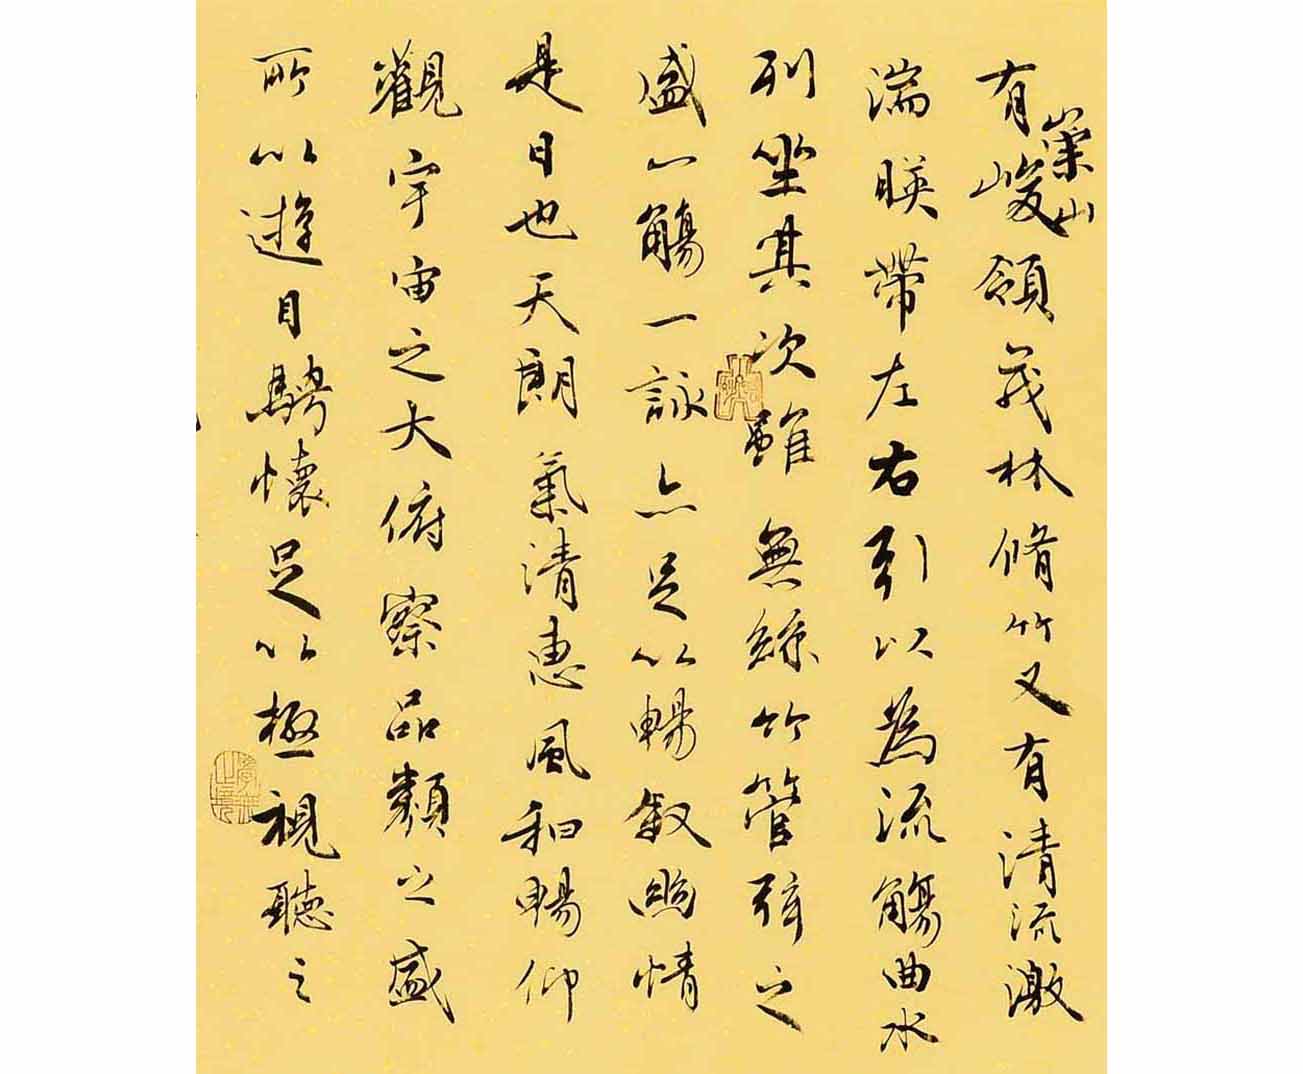 有崇山峻領茂林脩竹又有清流激
湍暎帶左右引以為流觴曲水
列坐其次雖無絲竹管弦之
盛一觴一詠亦足以暢敘幽情
是日也天朗氣清惠風和暢仰
觀宇宙之大俯察品類之盛
所以遊目騁懷足以極視聽之